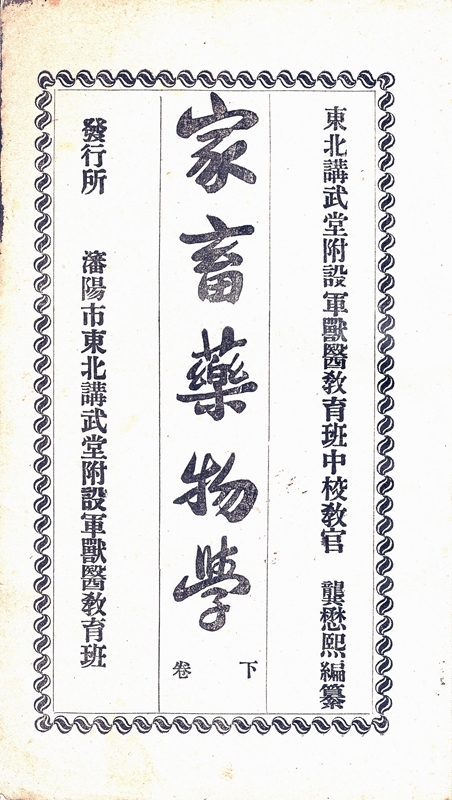 東北講武堂附設軍獸醫敎育班中校敎官 龔懋熙編纂
家畜藥物學
下卷
發行所 瀋陽市東北講武堂附設軍獸醫敎育班